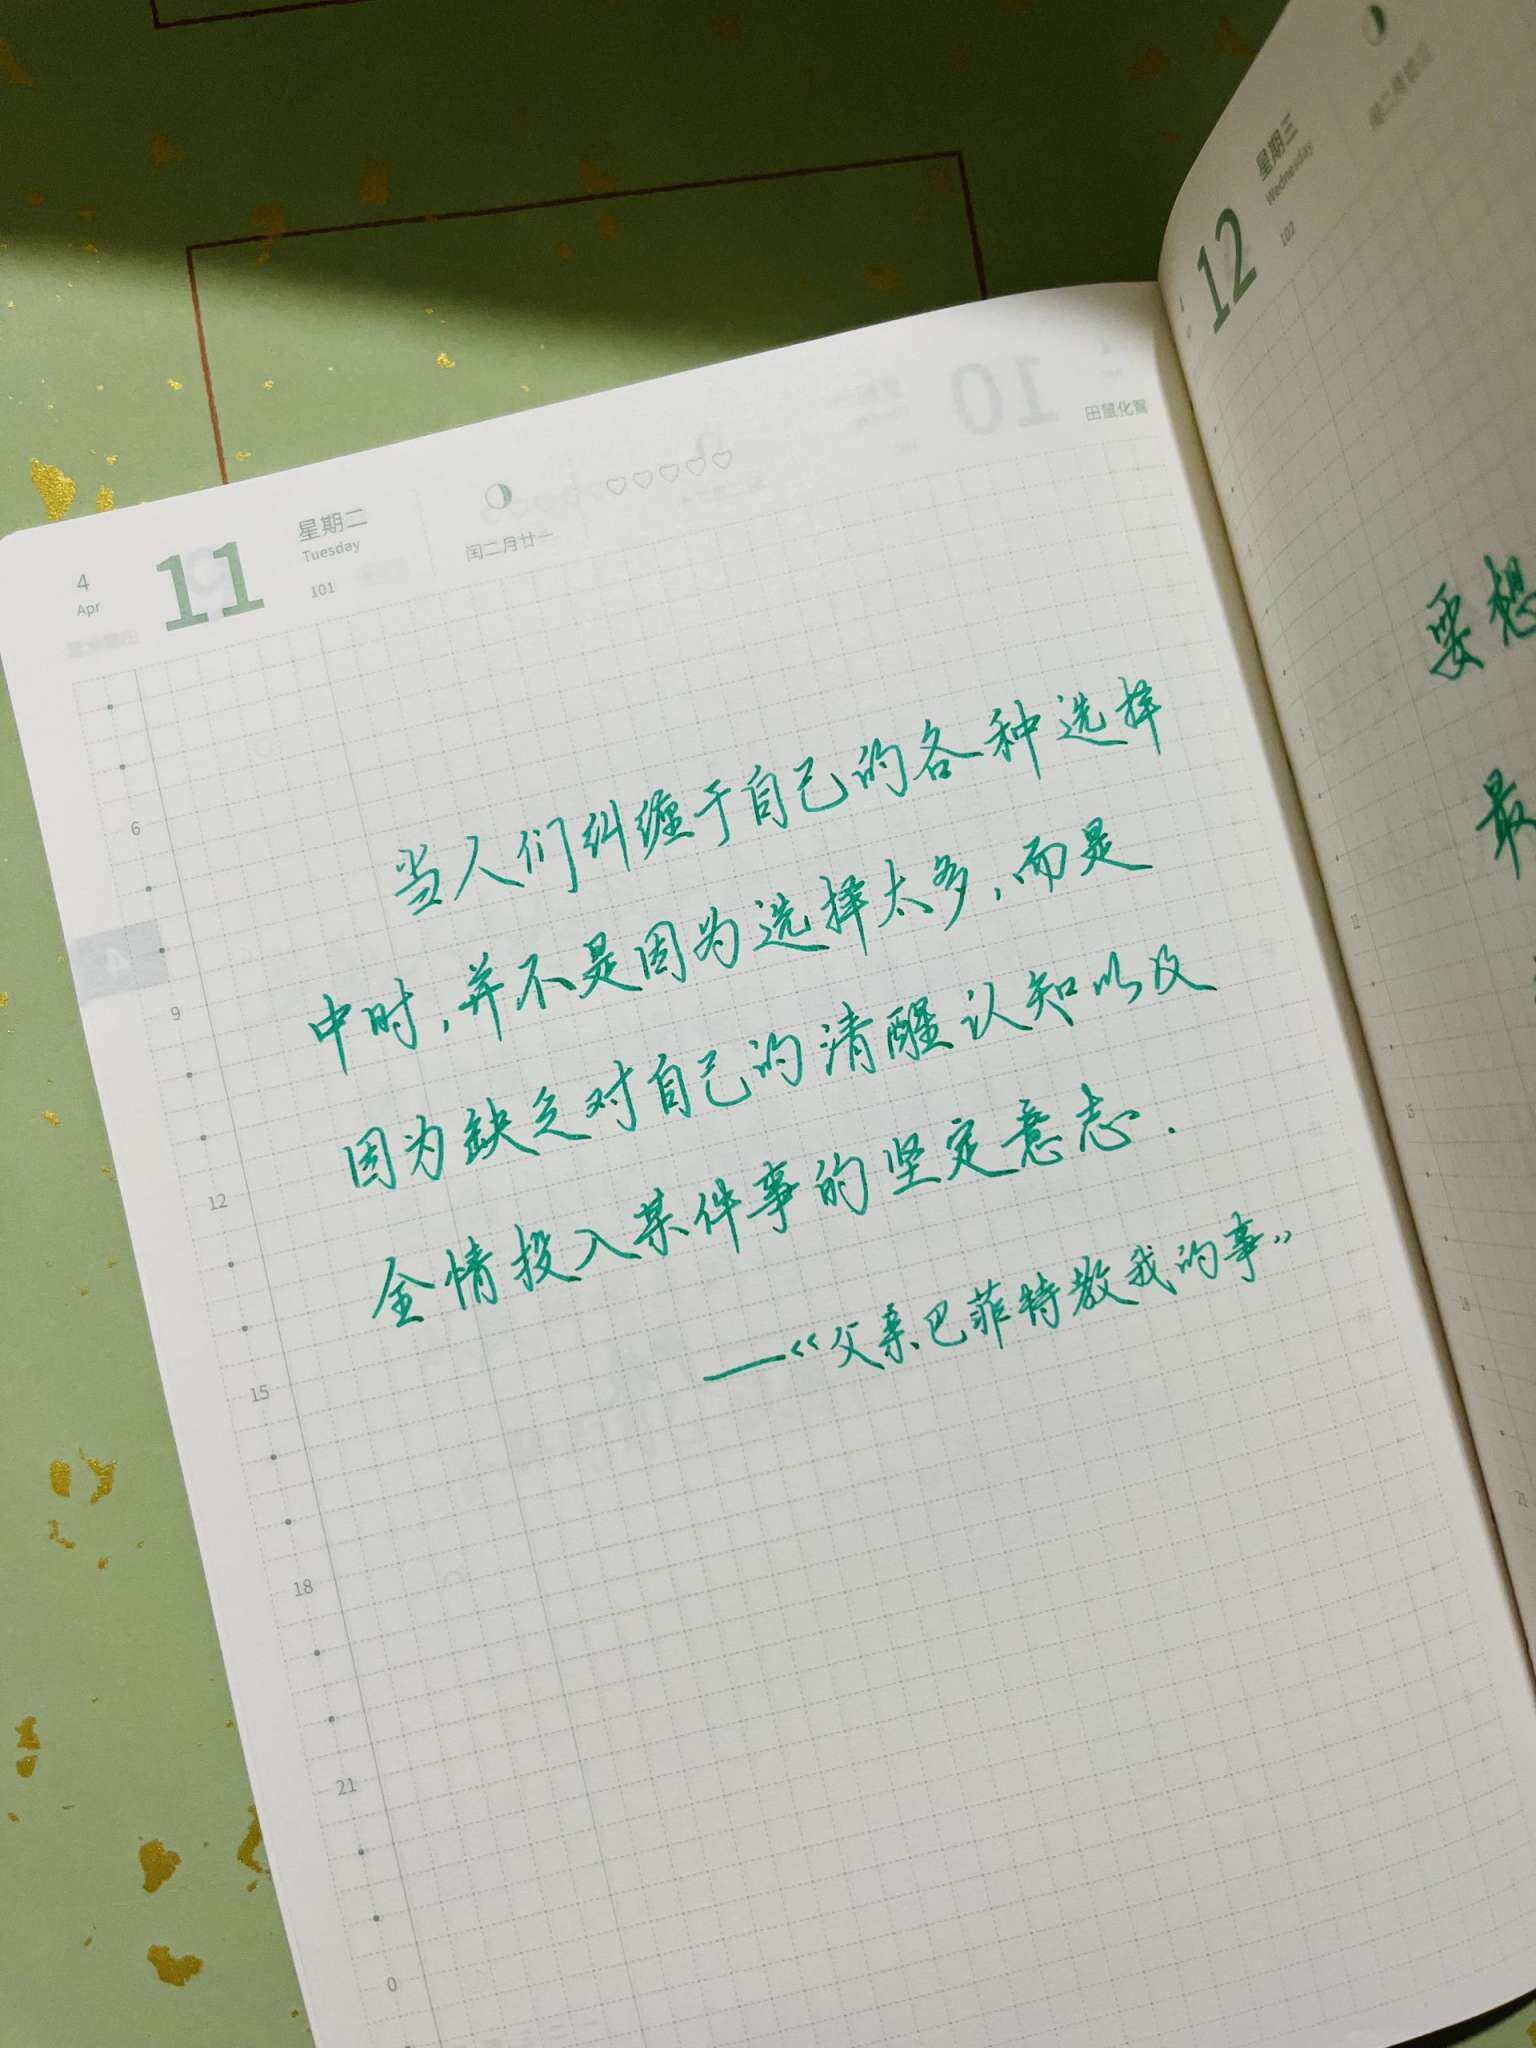 4
Apr
11
星期二
Tuesday
101
闰二月廿一
田鼠化鴽
当人们纠缠于自己的各种选择
中时,并不是因为选择太多,而是
因为缺乏对自己的清醒认知以及
全情投入某件事的坚定意志.
——《父亲巴菲特教我的事》
6
9
12
15
18
21
0
4
10
12
星期三
Wednesday
102
要想
最
21